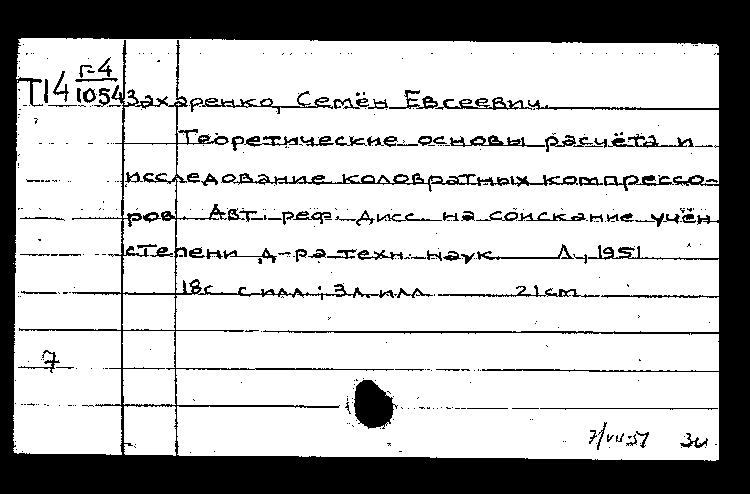 Г-4
П14 1054 Захаренко, Семён Евсеевич.
Теоретические основы расчёта и
исследование коловратных компрессо-
ров. Авт. реф. дисс. на соискание учён.
степени д-ра техн. наук. Л., 1951
18с. с илл.; 3л. илл. 21cm
7
7/VII-51 Зи